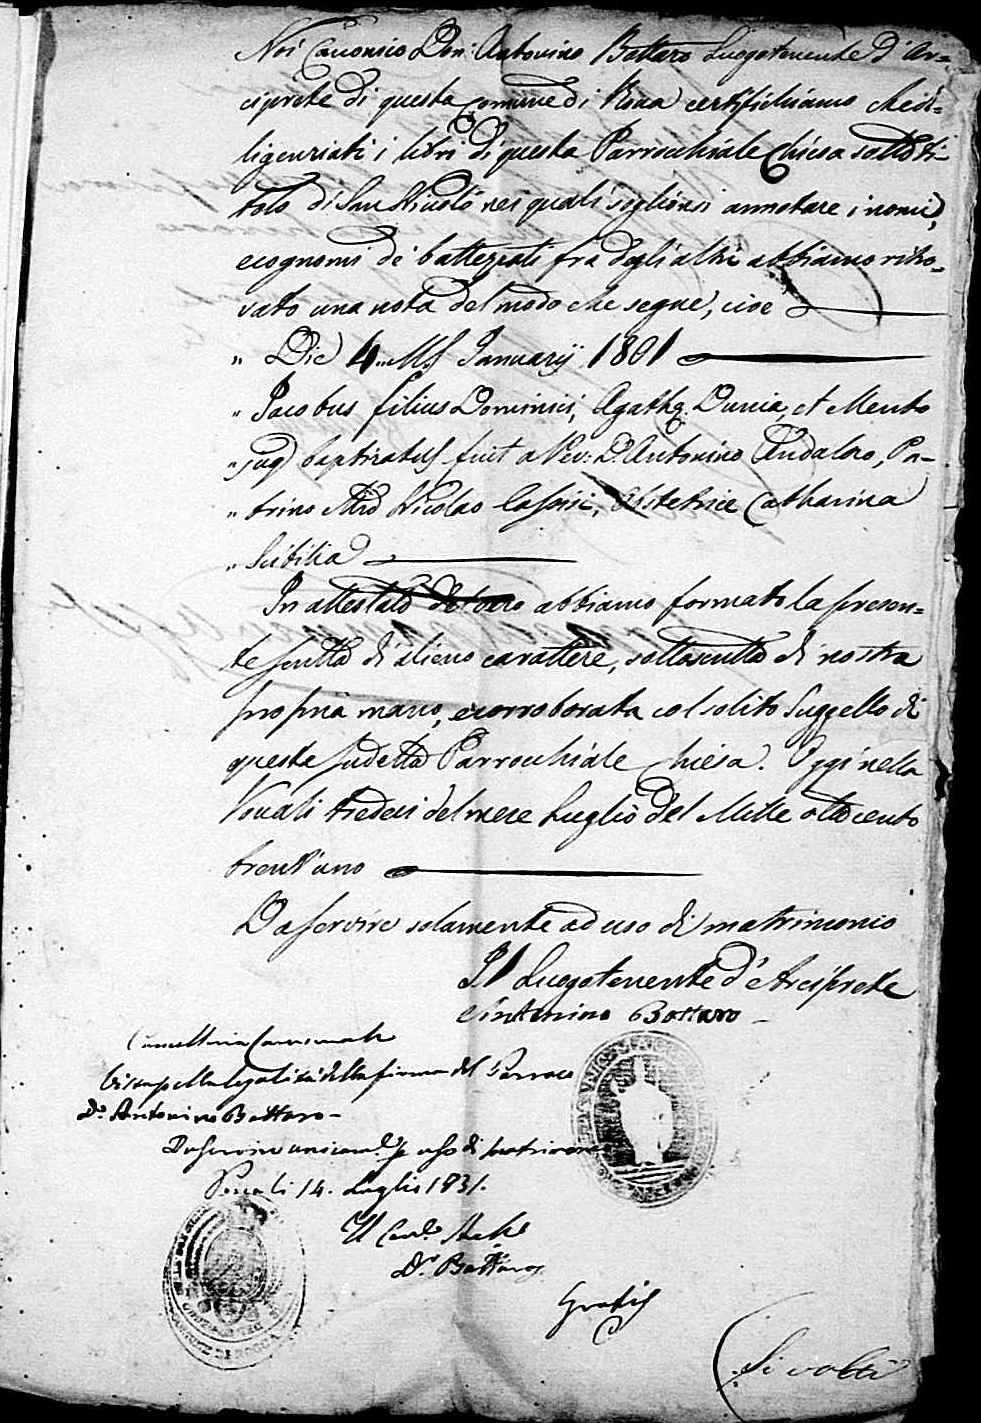 Noi Canonico Don: Antonino Bottaro Luogotenente D'Ar=
ciprete di questa Comune di Roma certifichiamo che di=
ligenziati i libri di questa Parrocchiale Chiesa sotto ti
tolo di San Nicolò nei quali soglionsi annotare i nomi,
e cognomi de' battezzati fra degli altri abbiamo ritro=
vato una nota del modo che segue, cioe
" Die 4 M.s Januarij 1801
" Jacobus filius Dominici, Agathę Duncia, et Mento
" jug baptizatus fuit a Rev: D. Antonino Andaloro, Pa=
" trino Nicolao Caspisi, Obstetrice Catharina
" Scibilia
In attestato del vero abbiamo formato la presen=
te scritta di alieno carattere, sottoscritta di nostra
propria mano, e corroborata col solito Suggello di
questa sudetta Parrocchiale Chiesa. Oggi nella
Novali tredeci del mese Luglio del Mille ottocento
trent'uno
Da servire solamente ad uso di matrimonio
Il Luogotenente d'Arciprete
Antonino Bottaro
Cancelleria Comunale
Vista per la legalità della firma del Parroco
D.n Antonino Bottaro
Da servire unicam.e p uso di matrimonio
Novali 14. Luglio 1831.
Il
D.r Bottaro
Gratis
Si volti